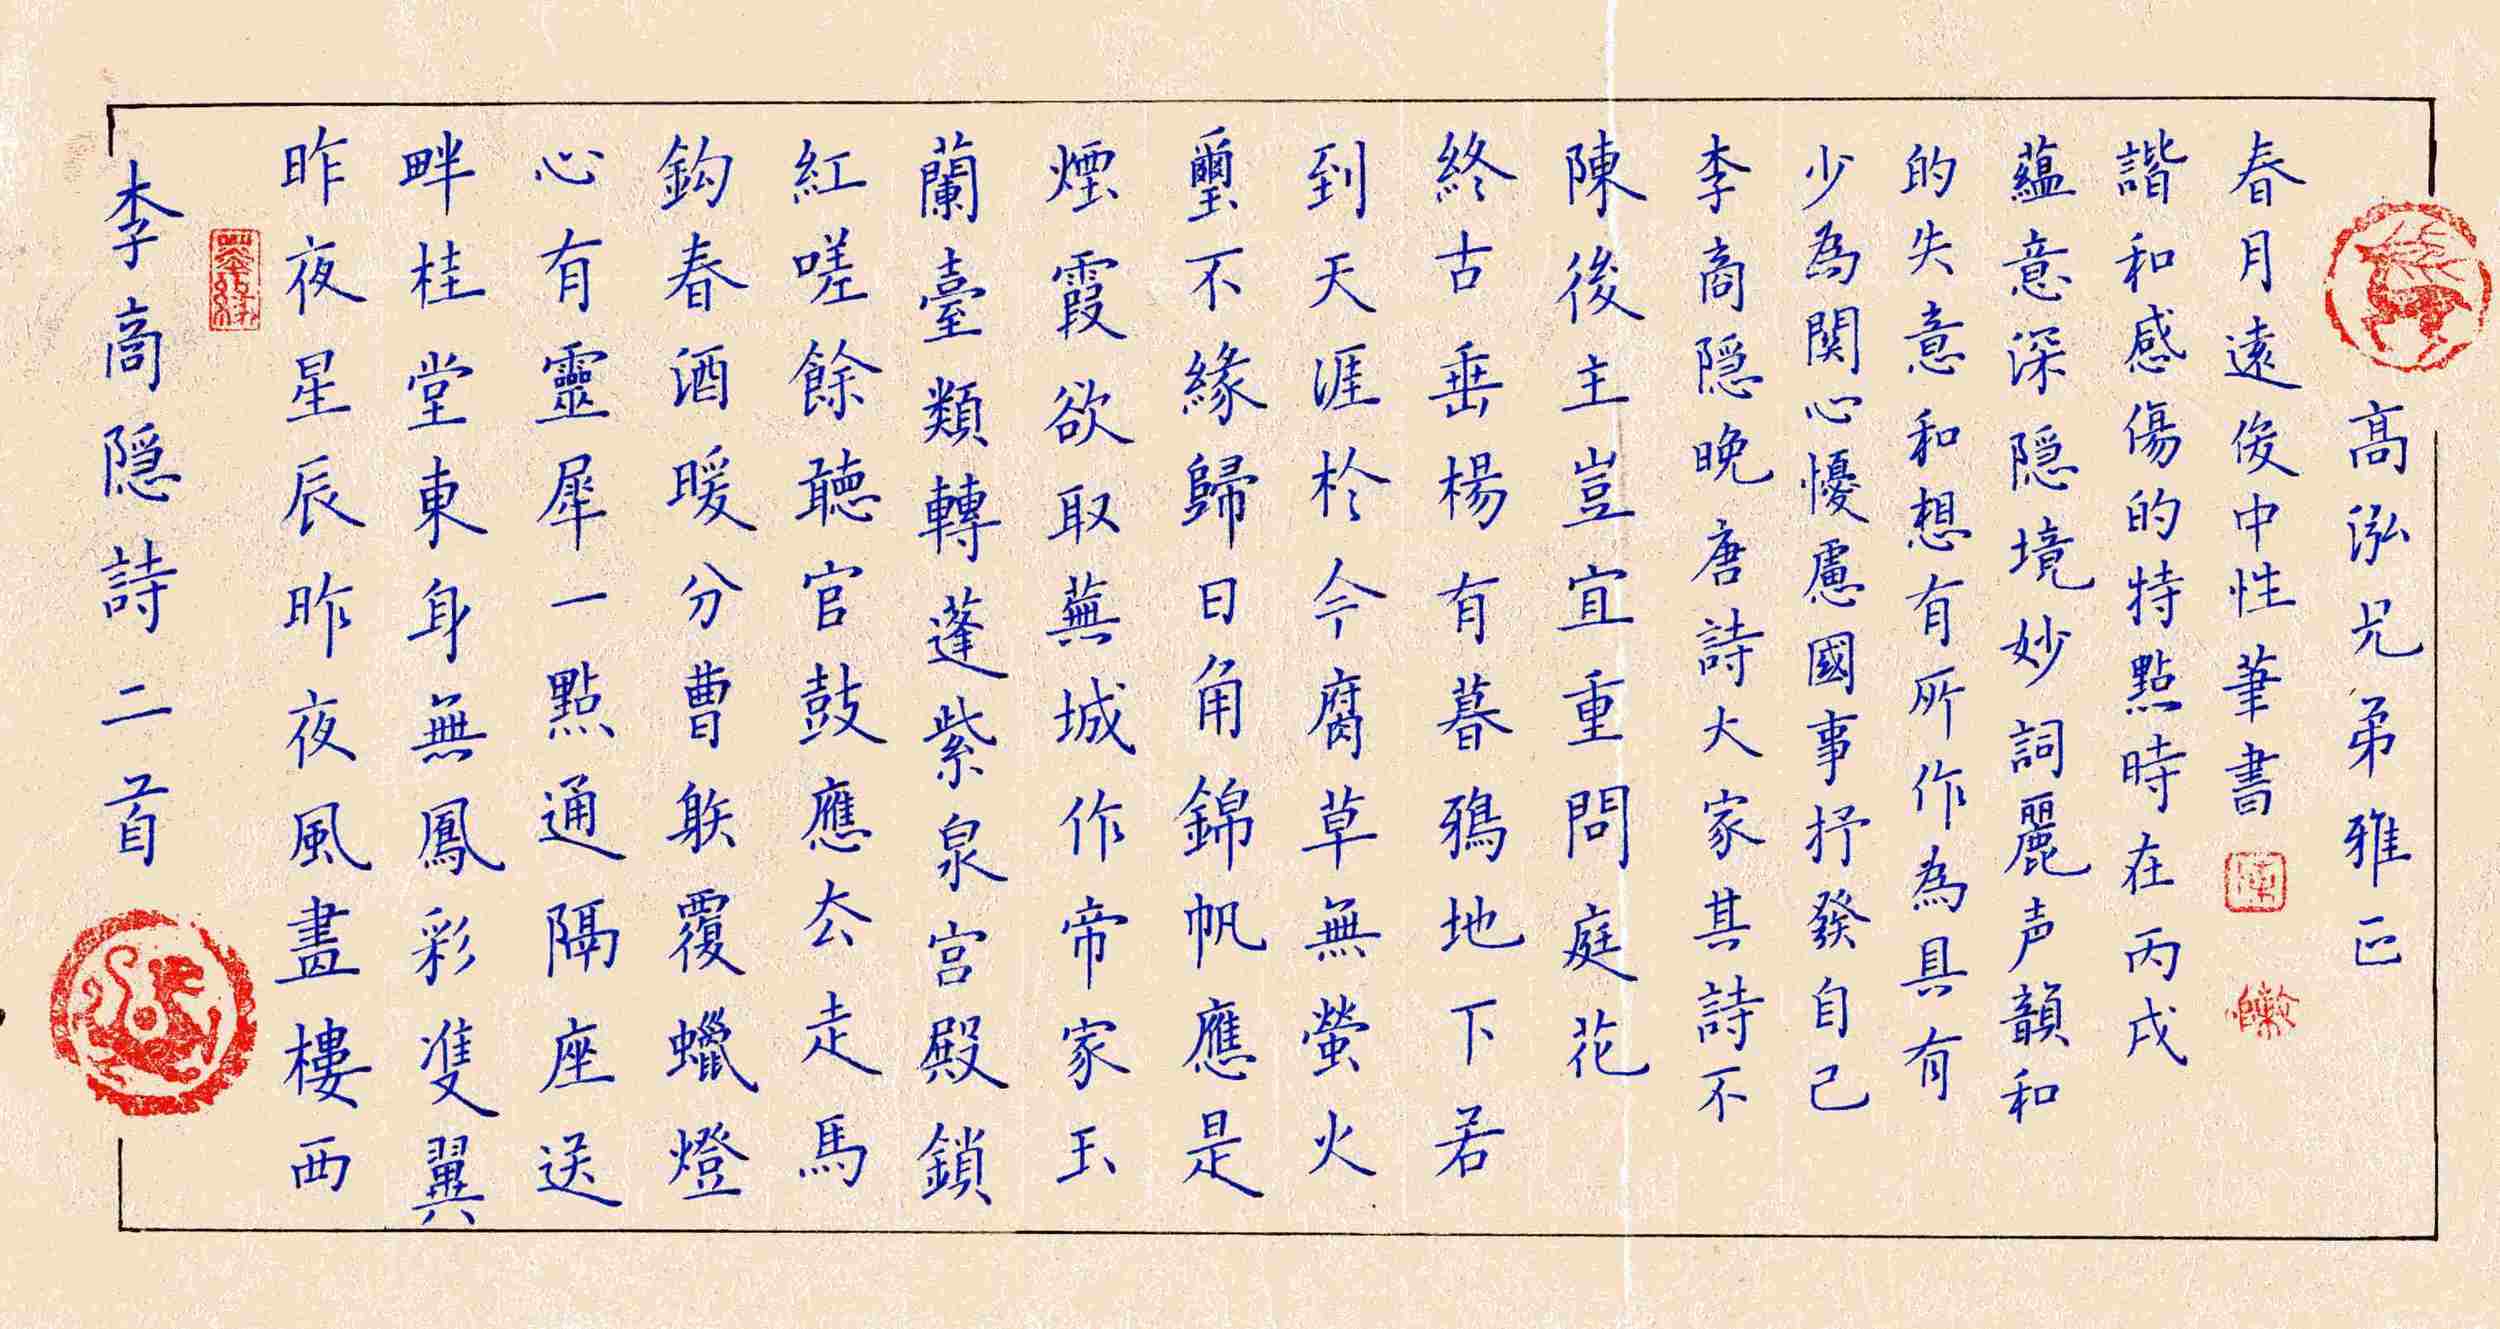 李商隐詩二首
昨夜星辰昨夜風畫樓西
畔桂堂東身無鳳彩雙翼
心有靈犀一點通隔座送
鈎春酒暖分曹䠶覆蠟燈
紅嗟餘聽官鼓應厺走馬
蘭臺類轉蓬紫泉宫殿鎖
煙霞欲取蕪城作帝家玉
璽不緣歸日角錦帆應是
到天涯於今腐草無螢火
終古垂楊有暮鴉地下若
陳後主豈宜重問庭花
李商隐晚唐詩大家其詩不
少為関心懮慮國事抒發自己
的失意和想有所作為具有
蘊意深隐境妙詞麗声韻和
諧和感傷的特點時在丙戌
春月遠俊中性筆書
高泓兄弟雅正